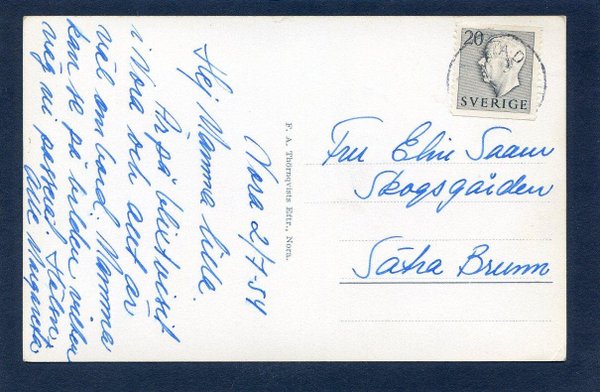 Nora 2/7-54
Hej Mamma lilla.
Är på blixtvisit
i Nora och allt är
väl ombord. Mamma
kan se på bilden vilken
väg vi passera! Hälsn.
Margareta
F. A. Thörnqvists Eftr., Nora.
20
SVERIGE
Fru Elin
Skogsgården
Sätra Brunn